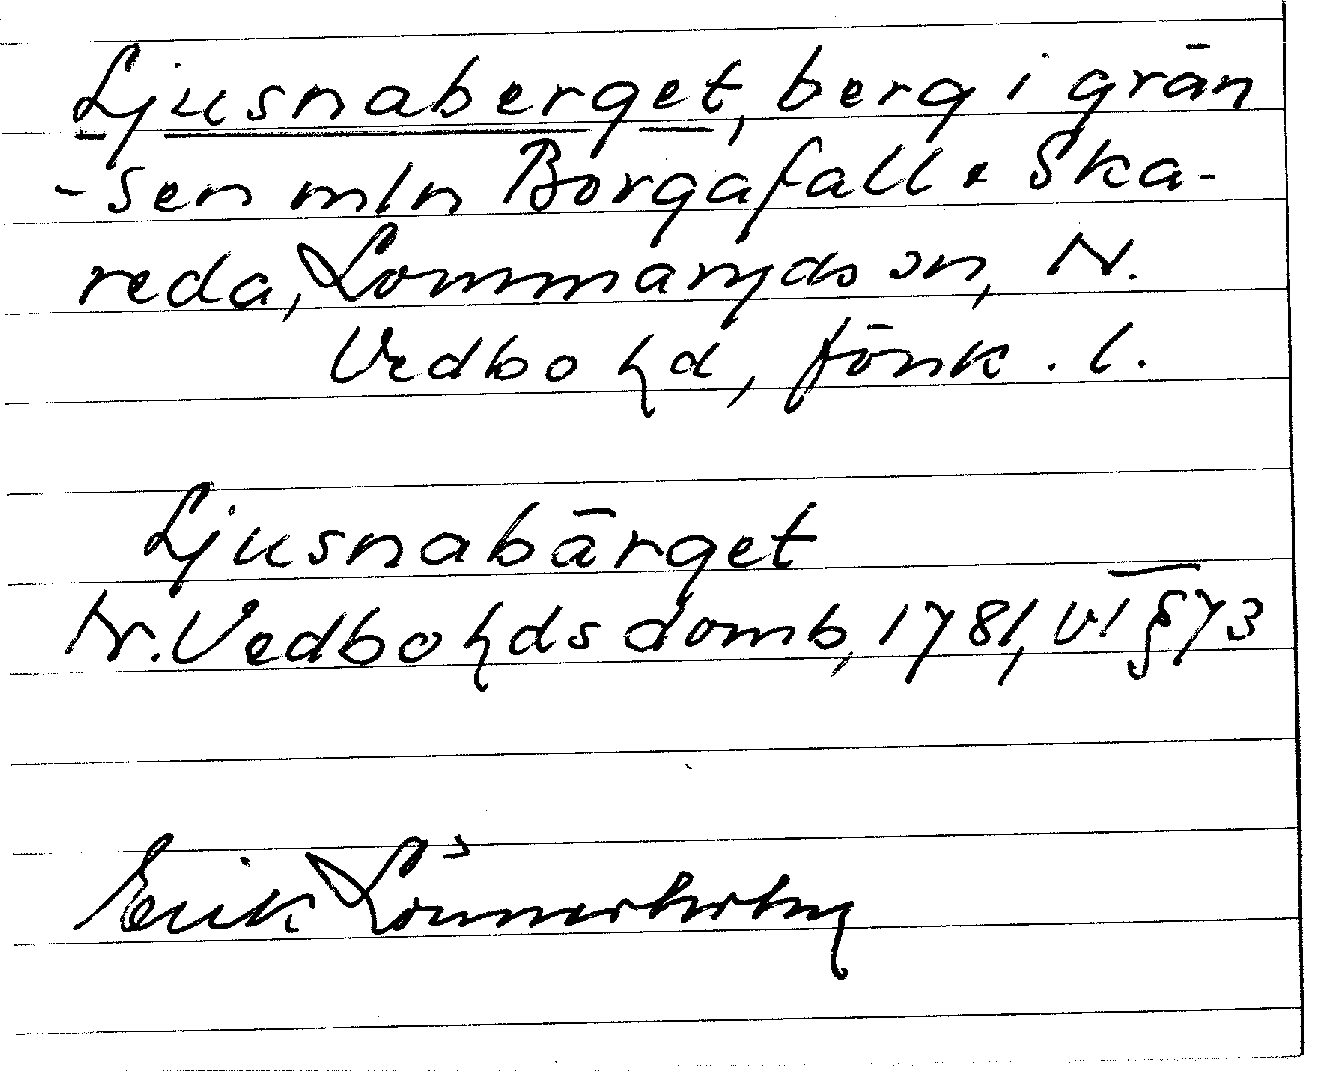 Ljusnaberget, berg i grän
-sen mln Borgafall & Ska-
reda, Lommaryds sn, N.
Vedbo hd, Jönk. l.
Ljusnabärget
N. Vedbo hds domb, 1781, VI § 73
Erik Lönnerholm